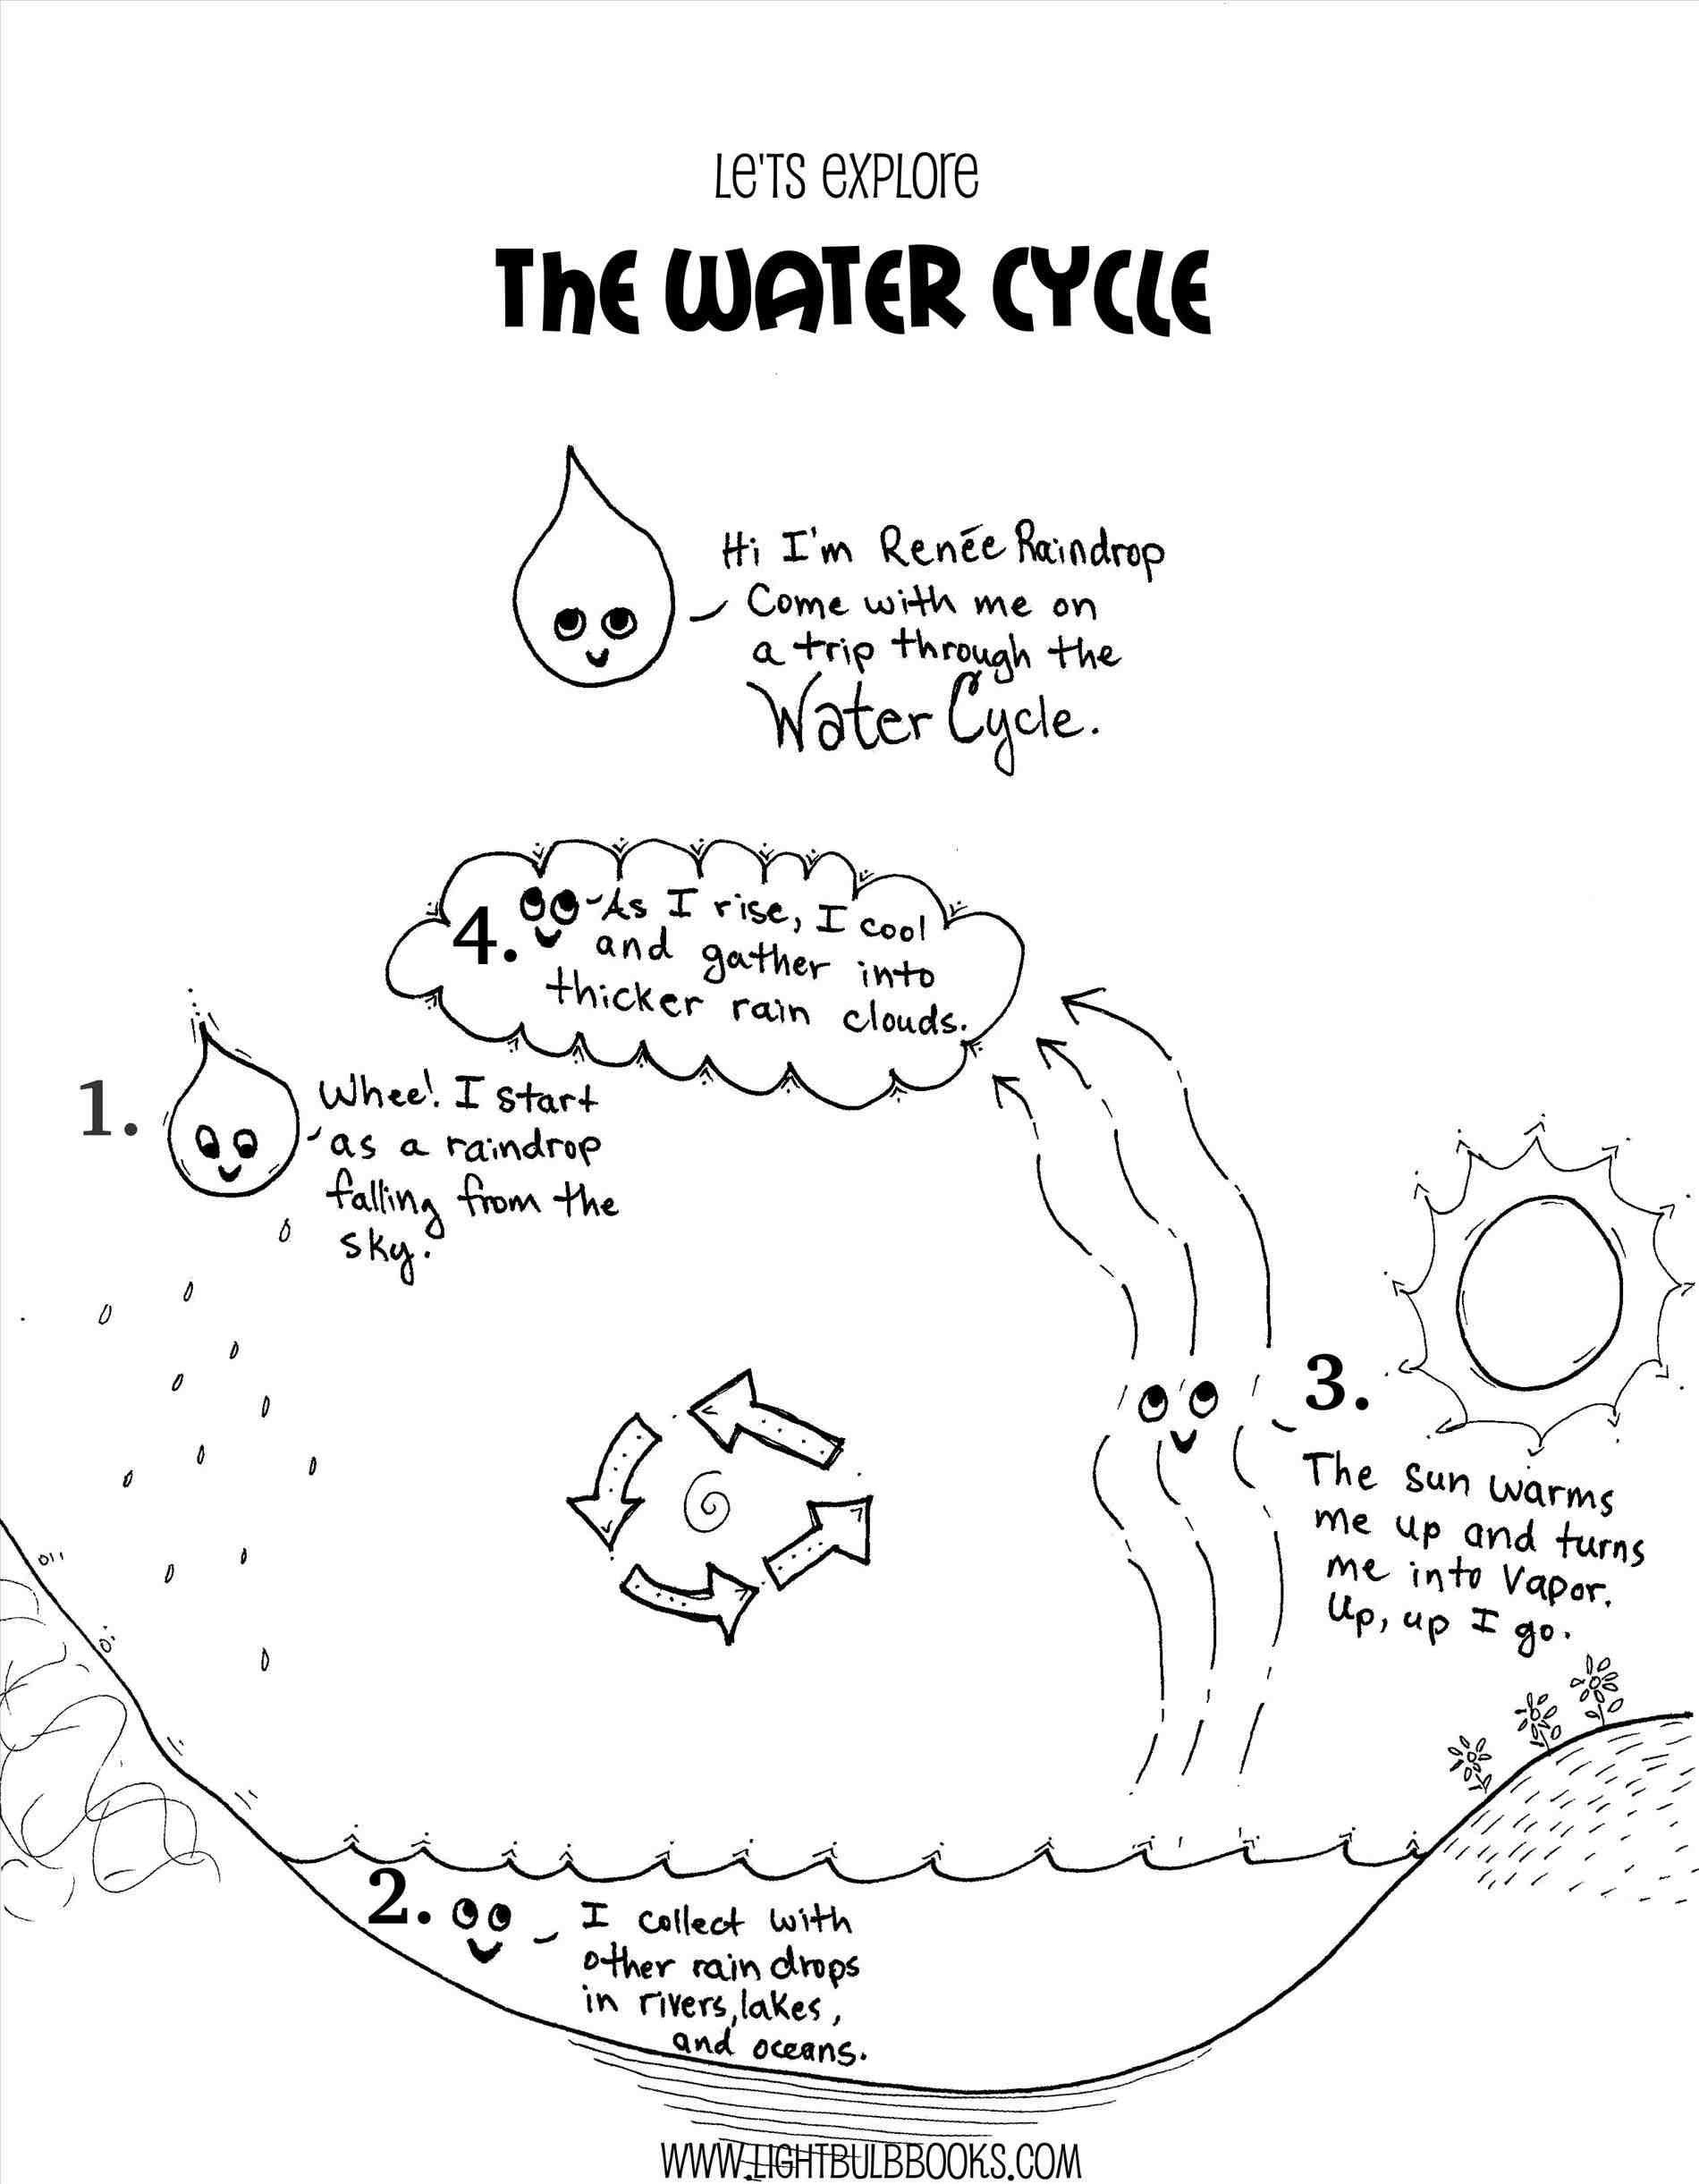 Le'TS eXPLOre
ThE WATER CYCLE
Hi I'm Renée Raindrop
Come with me on
a trip through the
Water Cycle.
4. As I rise, I cool
and gather into
thicker rain clouds.
1. Whee! I start
as a raindrop
falling from the
sky.
3.
The sun warms
me up and turns
me into Vapor.
Up, up I go.
2. I collect with
other rain drops
in rivers, lakes,
and oceans.
WWW.LIGHTBULBBOOKS.COM